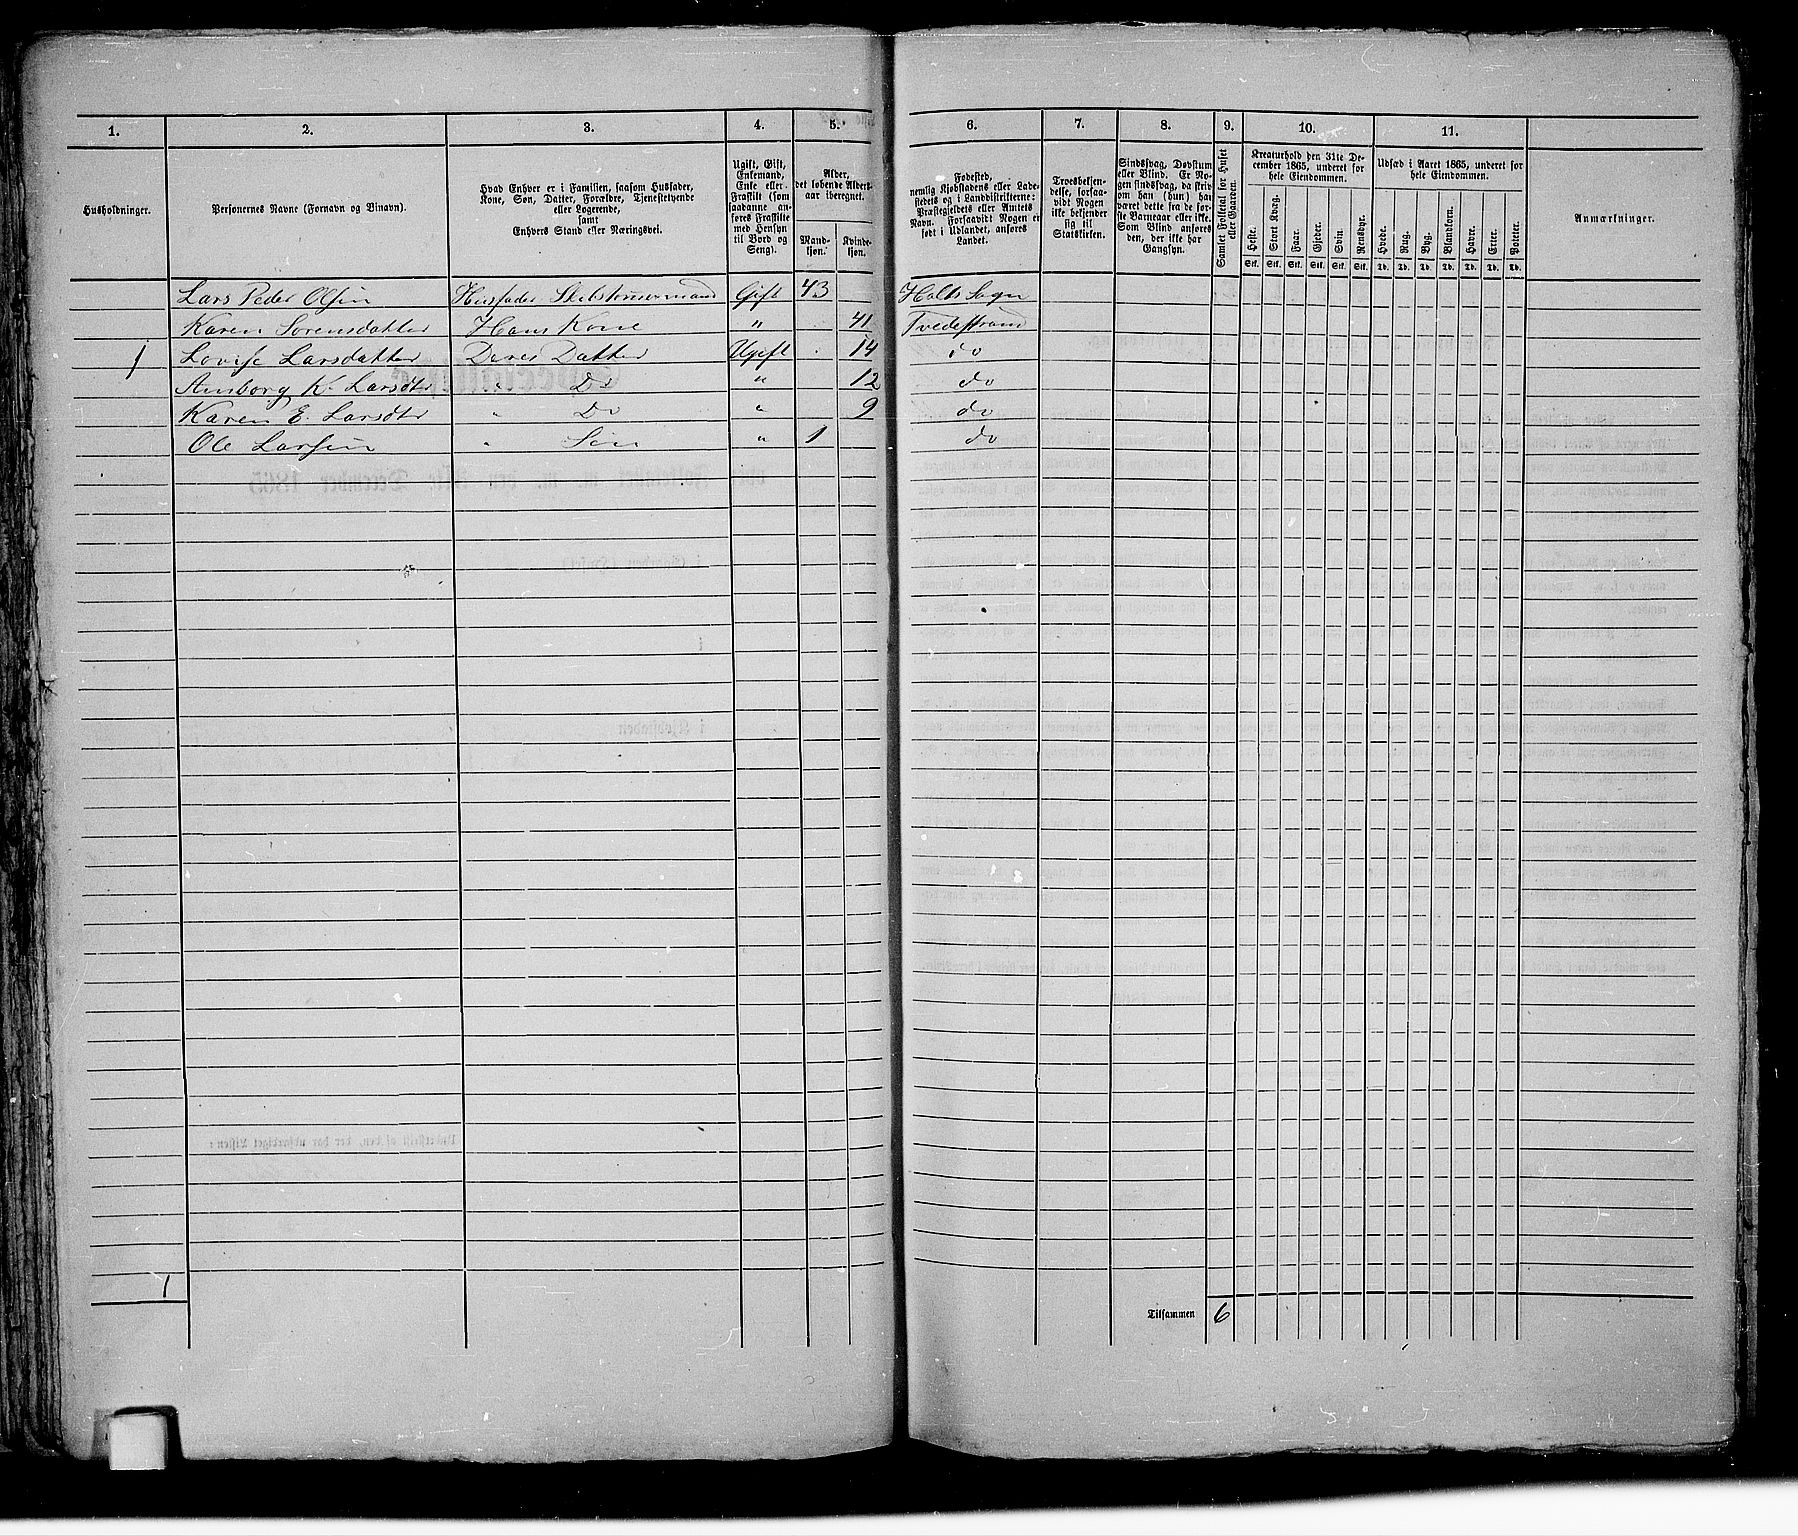 1. 2. 3. 4. 5. 6. 7. 8. 9. 10. 11.
Husholdninger.
Personernes Navne (Fornavn og Binavn).
Hvad Enhver er i Familien, saasom Husfader,
Kone, Søn, Datter, Forældre, Tjenestetyende
eller Logerende,
samt
Enhvers Stand eller Næringsvei.
Ugift, Gift,
Enkemand,
Enke eller
Fraskilt (som
saadanne an-
føres Fraskilte
med Hensyn
til Bord og
Seng).
Alder,
det løbende Alders-
aar iberegnet.
Mand-
kjøn.
Kvinde-
kjøn.
Fødested,
nemlig Kjøbstadens eller Lade-
stedets og i Landdistrikterne:
Præstegjeldets eller Amtets
Navn. Forsaavidt Nogen er
født i Udlandet, anføres
Landet.
Troesbekjen-
delse, forsaa-
vidt Nogen
ikke bekjender
sig til
Statskirken.
Sindssvag, Døvstum
eller Blind. Er No-
gen sindssvag, da skriv
om han (hun) har
været dette fra de før-
ste Barneaar eller ikke.
Som Blind anføres
den, der ikke har
Gangsyn.
Samlet Folketal for Huset
eller Gaarden.
Kreaturhold den 31te De-
cember 1865, underet for
hele Eiendommen.
Heste. Stort Kvæg. Faar. Gjeder. Svin. Rensdyr.
Stk. Stk. Stk. Stk. Stk. Stk.
Udsæd i Aaret 1865, underet for
hele Eiendommen.
Hvede. Rug. Byg. Blandkorn. Havre. Erter. Poteter.
Td. Td. Td. Td. Td. Td. Td.
Anmærkninger.
Lars Peder Olsen Husfader Gift 43 Holts Sogn
Karen Sørensdatter Hans Kone " 41 Tvedestrand
1 Lovise Larsdatter Deres Datter Ugift 14 do
Amborg K. Larsdtr " Do " 12 do
Karen E. Larsdtr " Do " 9 do
Ole Larsen " Søn " 1 do
1
Tilsammen 6